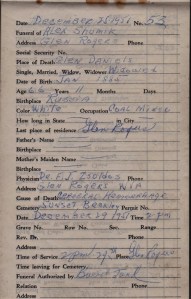 Date December 25 1951 No. 55
Funeral of Alex Shumik
Address Glen Rogers Phone
Social Security No.
Place of Death Glen Daniels
Single, Married, Widow, Widower
Date of Birth Jan
Age 66 Years 11 Months Days
Birthplace Russia
Color White Occupation Coal Miner
How long in State in City
Last place of residence Glen Rogers
Father's Name
Birthplace
Mother's Maiden Name
Birthplace
Physician Dr. F. J. Phone
Address Glen Rogers W. Va
Cause of Death Cerebral Hemorrhage
Cemetery Sunset Permit No.
Date December 29 1951 Time 2 PM
Grave No. Row No. Sec. Range
Rev. Dr. Phone
Address
Time of Service 2 PM Glen Rogers
Time leaving for Cemetery
Funeral Authorized by
Relation Phone
Address